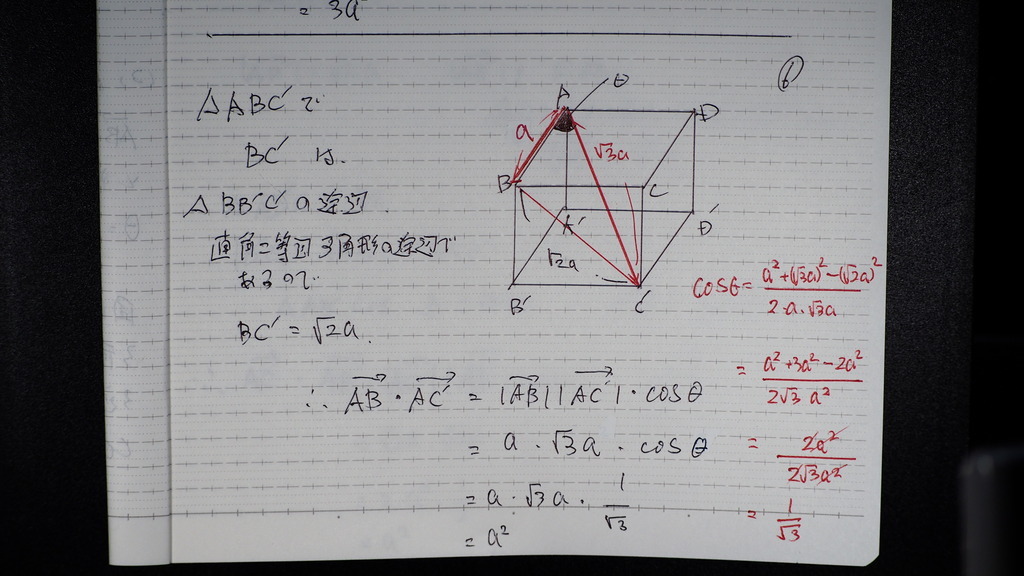 = 3a²
⑥
△ABC′で
BC′は、
△BB′C′の斜辺
直角二等辺3角形の斜辺で
あるので、
BC′ = √2a.
A
θ
D
a
√3a
B
C
A′
D′
√2a
B′
C′
cosθ = (a² + (√3a)² − (√2a)²) / (2·a·√3a)
= (a² + 3a² − 2a²) / (2√3 a²)
= 2a² / 2√3a²
= 1/√3
∴ AB→ · AC′→ = |AB→||AC′→| · cosθ
= a · √3a · cosθ
= a · √3a · 1/√3
= a²